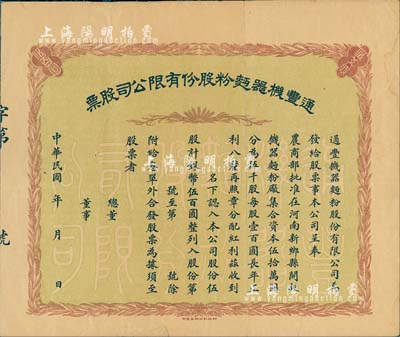 上海陽明拍賣
通豐機器麵粉股份有限公司股票
通豐機器麵粉股份有限公司為
發給股票事本公司呈奉
農商部批准在河南新鄉縣開設
機器麵粉廠集合資本伍拾萬圓
分為伍千股每股壹百圓長年正
利八釐再照章分配紅利茲收到
名下認入本公司股份伍
股計銀幣伍百圓整列入股份第
號至第 號除
附給息單外合發股票為據須至
股票者
總董
董事
中華民國 年 月 日
字第 號
有限
公司
上海陽明拍賣
上海陽明拍賣